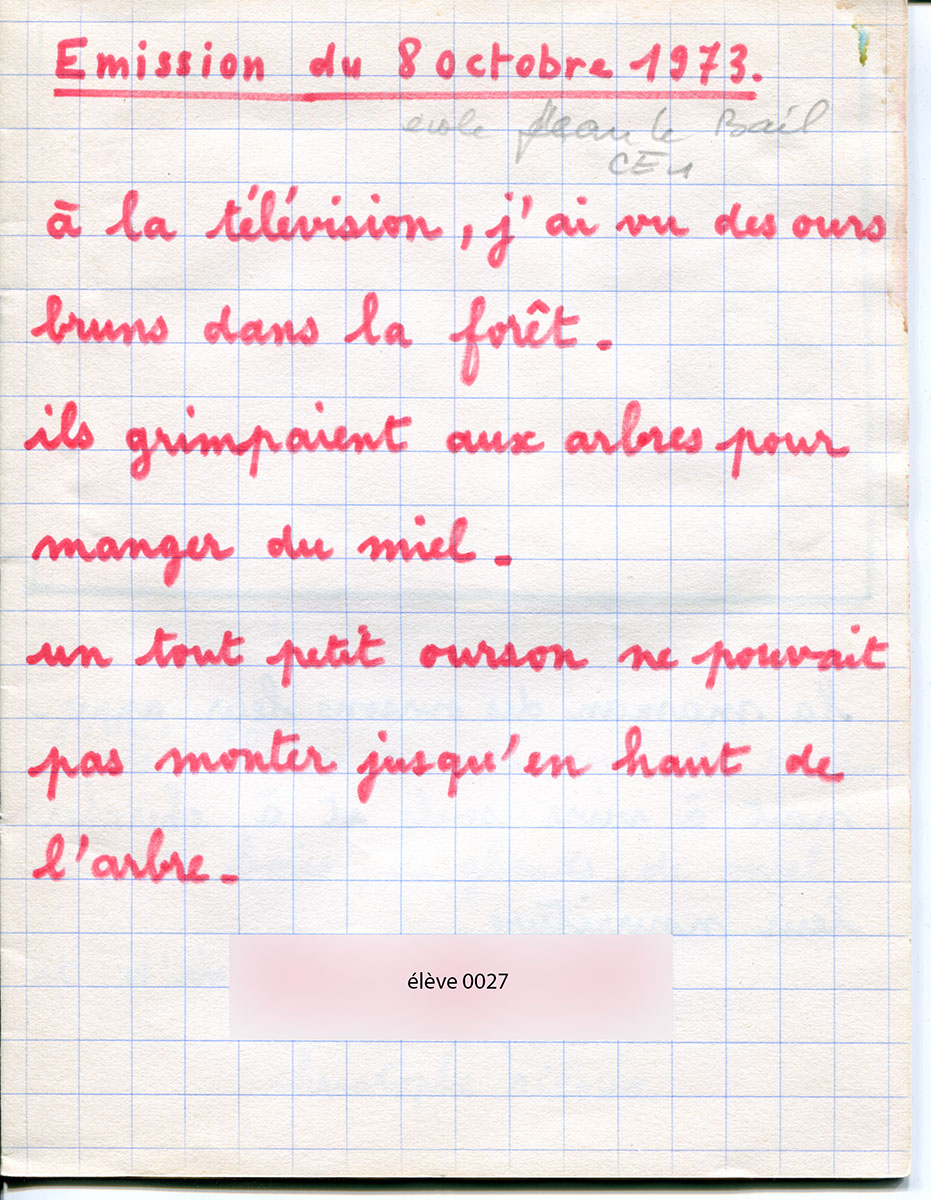 Emission du 8 octobre 1973.
école Jean le Bail
CE1
à la télévision, j'ai vu des ours
bruns dans la forêt.
ils grimpaient aux arbres pour
manger du miel.
un tout petit ourson ne pouvait
pas monter jusqu'en haut de
l'arbre.
élève 0027